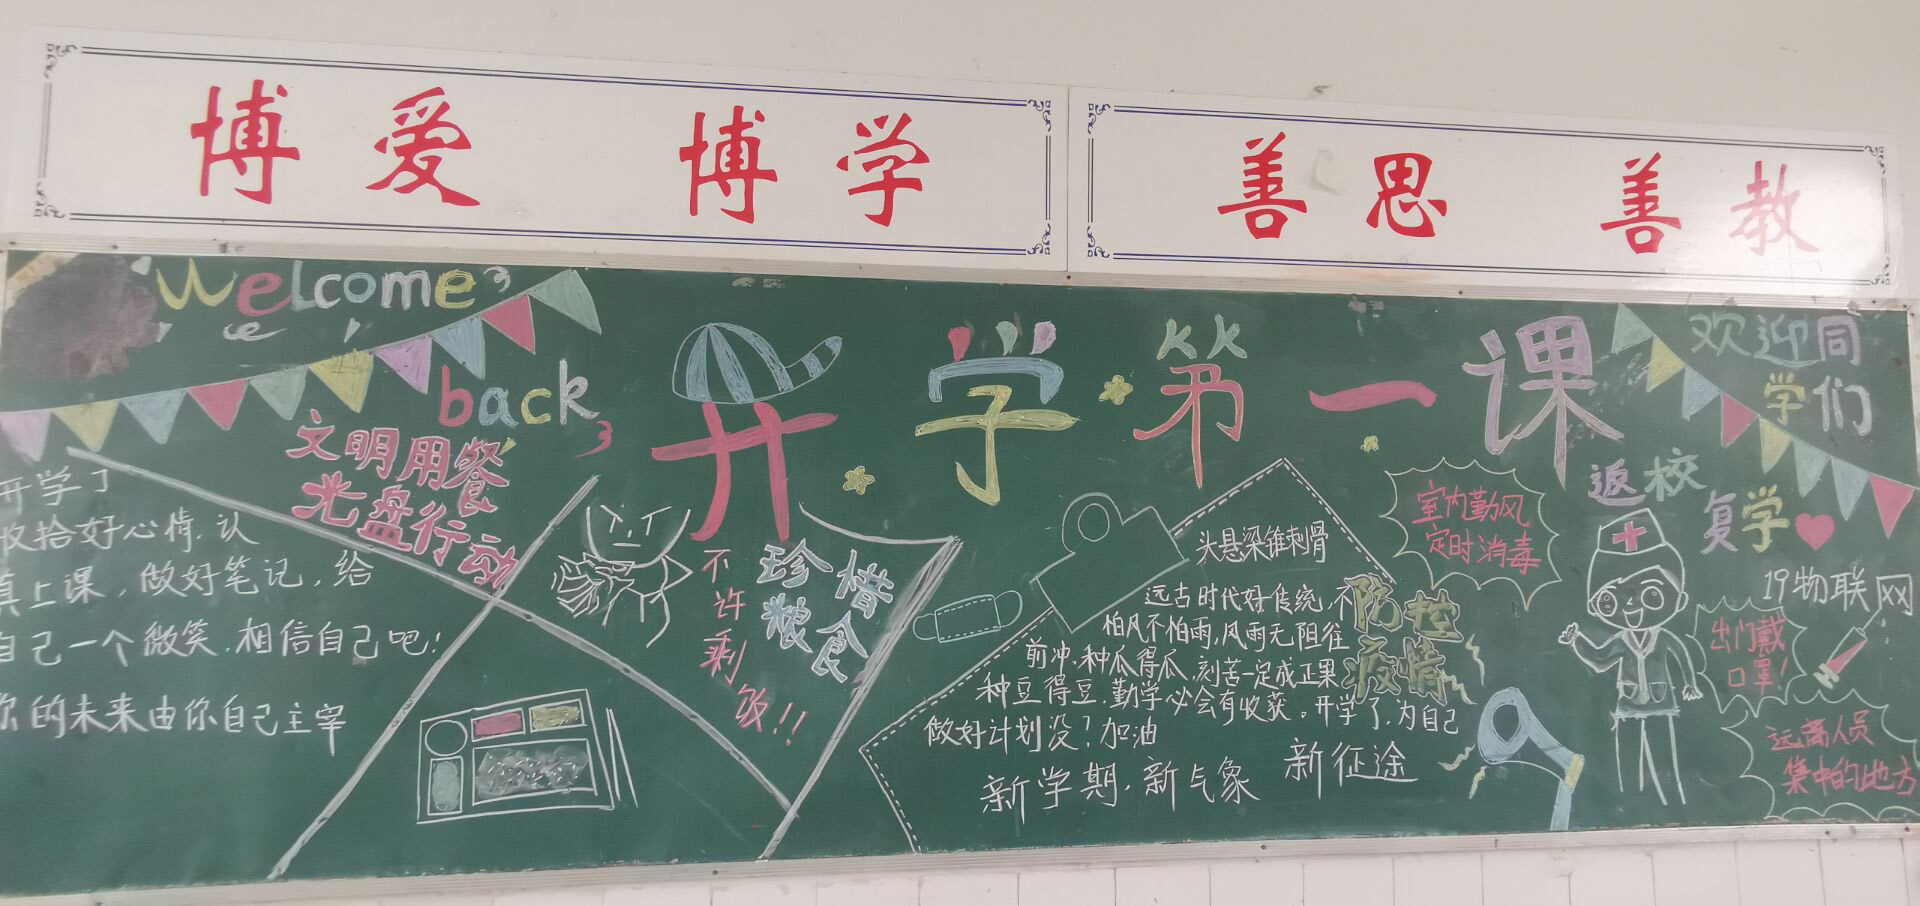 博爱 博学 善思 善教
welcome
back
开学第一课
欢迎同
学们
返校
复学
19物联网
文明用餐
光盘行动
开学了
收拾好心情,认
真上课,做好笔记,给
自己一个微笑,相信自己吧!
你的未来由你自己主宰
不许剩饭!!
珍惜
粮食
头悬梁锥刺骨
远古时代好传统,不
怕风不怕雨,风雨无阻往
前冲,种瓜得瓜,刻苦一定成正果
种豆得豆,勤学必会有收获。开学了,为自己
做好计划没?加油
新学期,新气象 新征途
防控
疫情
室内勤风
定时消毒
出门戴
口罩!
远离人员
集中的地方